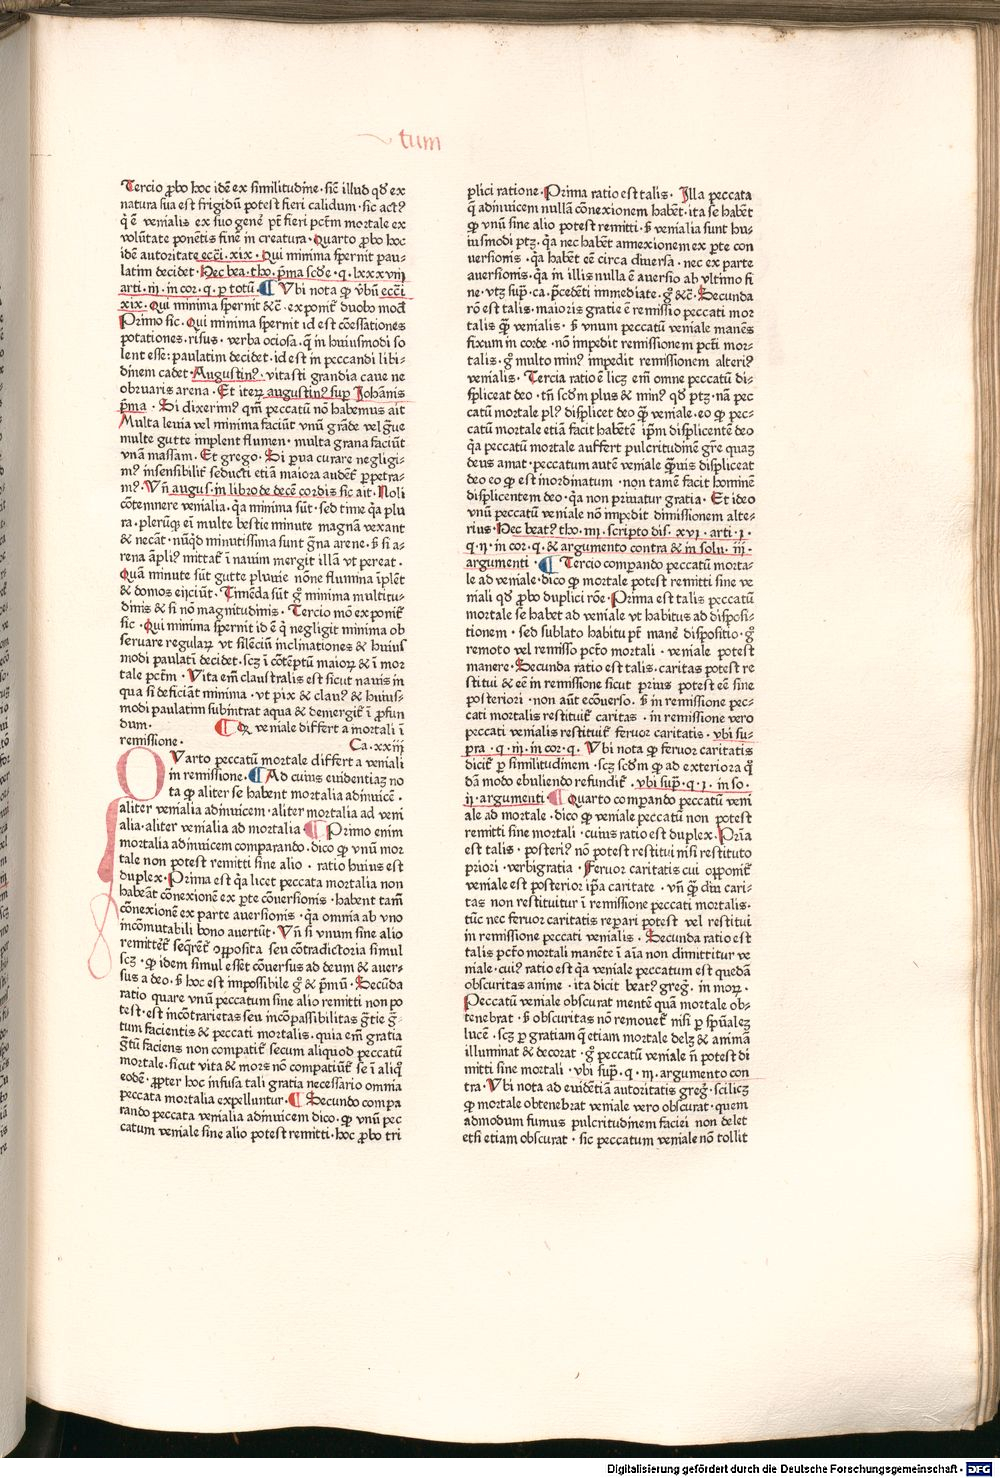 tum
Tercio ꝓbo hoc idē ex similitudīne · sic̄ illud qđ ex
natura sua est frigidū potest fieri calidum · sic actꝰ
q̇ ē venialis ex suo genē pt̄ fieri pctm̄ mortale ex
volūtate ponētis finē in creatura · Quarto ꝓbo hoc
idē autoritate ecc̄i . xix . Qui minima spernit pau-
latim decidet · Hec bea · tho . p̄ma scd̄e · q . lxxxviij
arti . iij . in cor . q . p totū . ¶ Vbi nota ꝙ v̄bū ecc̄i
xix . Qui minima spernit &c̄ . exponit᷑ duobꝰ modꝭ
Primo sic . Qui minima spernit id est cōessationes
potationes . risus . verba ociosa . q̄ in huiusmodi so
lent esse: paulatim decidet . id est in peccandi libi-
dinem cadet · Augustinꝰ . vitasti grandia caue ne
obruaris arena . Et iteꝝ augustinꝰ sup Iohānis
p̄ma . Si dixerimꝰ qm̄ peccatū nō habemus ait
Multa leuia vel minima faciūt vnū grāde vel sicut
multe gutte implent flumen · multa grana faciūt
vnā massam . Et grego . Si ꝑua curare negligi-
mꝰ insensibilit᷑ seducti etiā maiora audet᷑ ꝑpetra-
mꝰ . Vn̄ augus . in libro de decē cordis sic ait . Noli
cōtemnere venialia . q̇a minima sūt · sed time q̇a plu
ra . plerūqꝫ ei᷒ multe bestie minute magnā vexant
& necāt · nūq̇d minutissima sunt ḡna arene . s̄ si a-
rena āpliꝰ mittat᷑ ī nauim mergit illā vt pereat .
Quā minute sūt gutte pluuie nōne flumina īplēt
& domos eijciūt . Timēda sūt gͦ minima multitu-
dinis & si nō magnitudinis . Tercio mō exponit᷑
sic . Qui minima spernit id ē q̇ negligit minima ob
seruare regulaꝝ vt silēciū inclinationes & huiuſ
modi paulati᷒ decidet . scꝫ ī cōtēptū maioꝝ & ī mor
tale pctm̄ . Vita em̄ claustralis est sicut nauis in
qua si deficiāt minima . vt pix & clauꝰ & huius-
modi paulatim subintrat aqua & demergit᷑ ī ꝓfun
dum . ¶ Qꝛ veniale differt a mortali ī
remissione . Ca . xxiij
QVarto peccatū mortale differt a veniali
in remissione . ¶ Ad cuius euidentiaꝫ no
ta ꝙ aliter se habent mortalia adinuicē .
aliter venialia adinuicem . aliter mortalia ad veni
alia . aliter venialia ad mortalia ¶ Primo enim
mortalia adinuicem comparando . dico ꝙ vnū mor
tale non potest remitti sine alio . ratio huius est
duplex . Prima est q̇a licet peccata mortalia non
habeāt cōnexionē ex ꝑte cōuersionis . habent tam̄
cōnexionē ex parte auersionis . q̇a omnia ab vno
incōmutabili bono auertūt . Vn̄ si vnum sine alio
remittet᷑ seq̄ret᷑ oꝓposita seu cōtradictoria simul
scꝫ . ꝙ idem simul esset cōuersus ad deum & auer-
sus a deo . s̄ hoc est impossibile gͦ & p̄mū . Secūda
ratio quare vnū peccatum sine alio remitti non po
test . est incōtrarietas seu incōpassibilitas ḡtie ḡ-
tum facientis & peccati mortalis . quia em̄ gratia
ḡtū faciens non compatit᷑ secum aliquod peccatū
mortale . sicut vita & mors nō compatiūt᷑ se ī aliq̊
eodē . ꝓpter hoc infusa tali gratia necessario omnia
peccata mortalia expelluntur . ¶ Secundo compa
rando peccata venialia adinuicem dico . ꝙ vnū pec
catum veniale sine alio potest remitti . hoc ꝓbo tri
plici ratione . Prima ratio est talis . Illa peccata
q̄ adinuicem nullā cōnexionem habēt . ita se habēt
ꝙ vnū sine alio potest remitti . s̄ venialia sunt hu-
iusmodi ptꝫ . q̇a nec habēt annexionem ex ꝑte con
uersionis . q̇a habēt eē circa diuersa . nec ex parte
auersionis . q̇a in illis nulla ē auersio ab vltimo fi
ne . vtꝫ sup̄ . ca . p̄cedēti immediate . gͦ &c̄ . Secunda
rō est talis . maioris gratie ē remissio peccati mor
talis q̄ꝫ venialis . s̄ vnum peccatū veniale manēs
fixum in corde . nō impedit remissionem pcti᷒ mor-
talis . gͦ multo minꝰ impedit remissionem alteriꝰ
venialis . Tercia ratio ē licꝫ em̄ omne peccatū di-
spliceat deo . tn̄ scd̄m plus & minꝰ qđ ptꝫ . nā pec
catū mortale plꝰ displicet deo q̄ꝫ veniale . eo ꝙ pec-
catū mortale etiā facit habētē ip̄m displicentē deo
q̇a peccatū mortale auffert pulcritudinē gr̄e quaꝫ
deus amat . peccatum autē veniale q̄ꝫuis displiceat
deo eo ꝙ est inordinatum . non tamē facit hominē
displicentem deo . q̇a non priuatur gratia . Et ideo
vnū peccatū veniale nō impedit dimissionem alte-
rius . Hec beatꝰ tho . iiij . scripto dis . xvi . arti . i .
q . ij . in cor . q . & argumento contra & in solu . iij .
argumenti . ¶ Tercio compando peccatū morta-
le ad veniale . dico ꝙ mortale potest remitti sine ve
niali qđ ꝓbo duplici rōe . Prima est talis peccatū
mortale se habet ad veniale vt habitus ad disposi-
tionem . sed sublato habitu pt̄ manē dispositio . gͦ
remoto vel remisso pctō mortali . veniale potest
manere . Secunda ratio est talis . caritas potest re
stitui & eē in remissione sicut prius potest eē sine
posteriori . non aūt ecōuerso . s̄ in remissione pec-
cati mortalis restituit᷑ caritas . in remissione vero
peccati venialis restituit᷑ feruor caritatis . vbi su-
pra . q . iij . in cor . q . Vbi nota ꝙ feruor caritatis
dicit᷑ ꝑ similitudinem . scꝫ scd̄m ꝙ ad exteriora q̄
dā modo ebuliendo refundit᷑ . vbi sup̄ . q . i . in so .
ij . argumenti ¶ Quarto compando peccatū veni
ale ad mortale . dico ꝙ veniale peccatū non potest
remitti sine mortali . cuius ratio est duplex . Prīa
est talis . posteriꝰ nō potest restitui nisi restituto
priori . verbigratia . Feruor caritatis cui opponit᷑
veniale est posterior ip̄a caritate . vn̄ ꝙ diu cari-
tas non restituitur ī remissione peccati mortalis .
tūc nec feruor caritatis reꝑari potest vel restitui
in remissione peccati venialis . Secunda ratio est
talis pctō mortali manēte ī aīa non dimittitur ve
niale . cuiꝰ ratio est q̇a veniale peccatum est quedā
obscuritas anime . ita dicit beatꝰ greg̊ . in moꝝ .
Peccatū veniale obscurat mentē quā mortale ob-
tenebrat . s̄ obscuritas nō remouet᷑ nisi ꝑ spūaleꝫ
lucē . scꝫ ꝑ gratiam q̄ etiam mortale delꝫ & animā
illuminat & decorat . gͦ peccatū veniale n̄ potest di
mitti sine mortali . vbi sup̄ . q . iij . argumento con
tra . Vbi nota ad euidētiā autoritatis greg̊ . sciliꝫ
ꝙ mortale obtenebrat veniale vero obscurat . quem
admodum fumus pulcritudinem faciei non delet
etsi etiam obscurat . sic peccatum veniale nō tollit
Digitalisierung gefördert durch die Deutsche Forschungsgemeinschaft - DFG